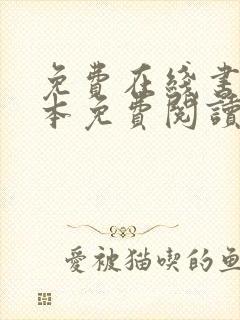 免費在綫書
本免費閱讀
愛被猫喫的魚